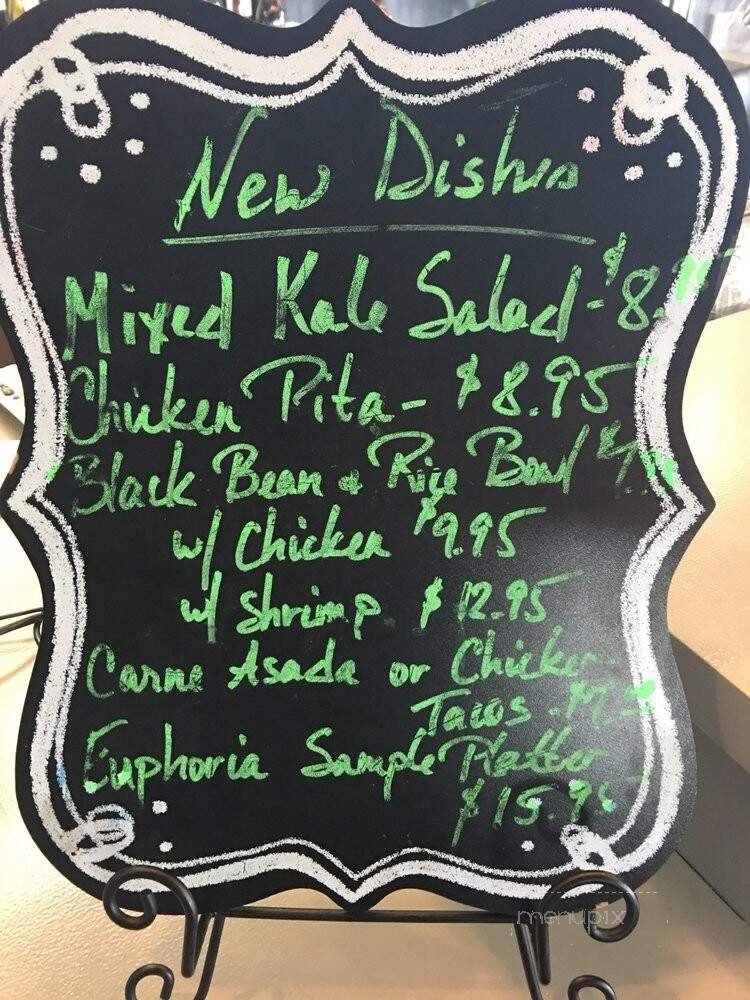 New Dishes
Mixed Kale Salad - $8.
Chicken Pita - $8.95
Black Bean & Rice Bowl
w/ Chicken $9.95
w/ Shrimp $12.95
Carne Asada or Chicken
Tacos -
Euphoria Sample Platter
$15.95
menupix